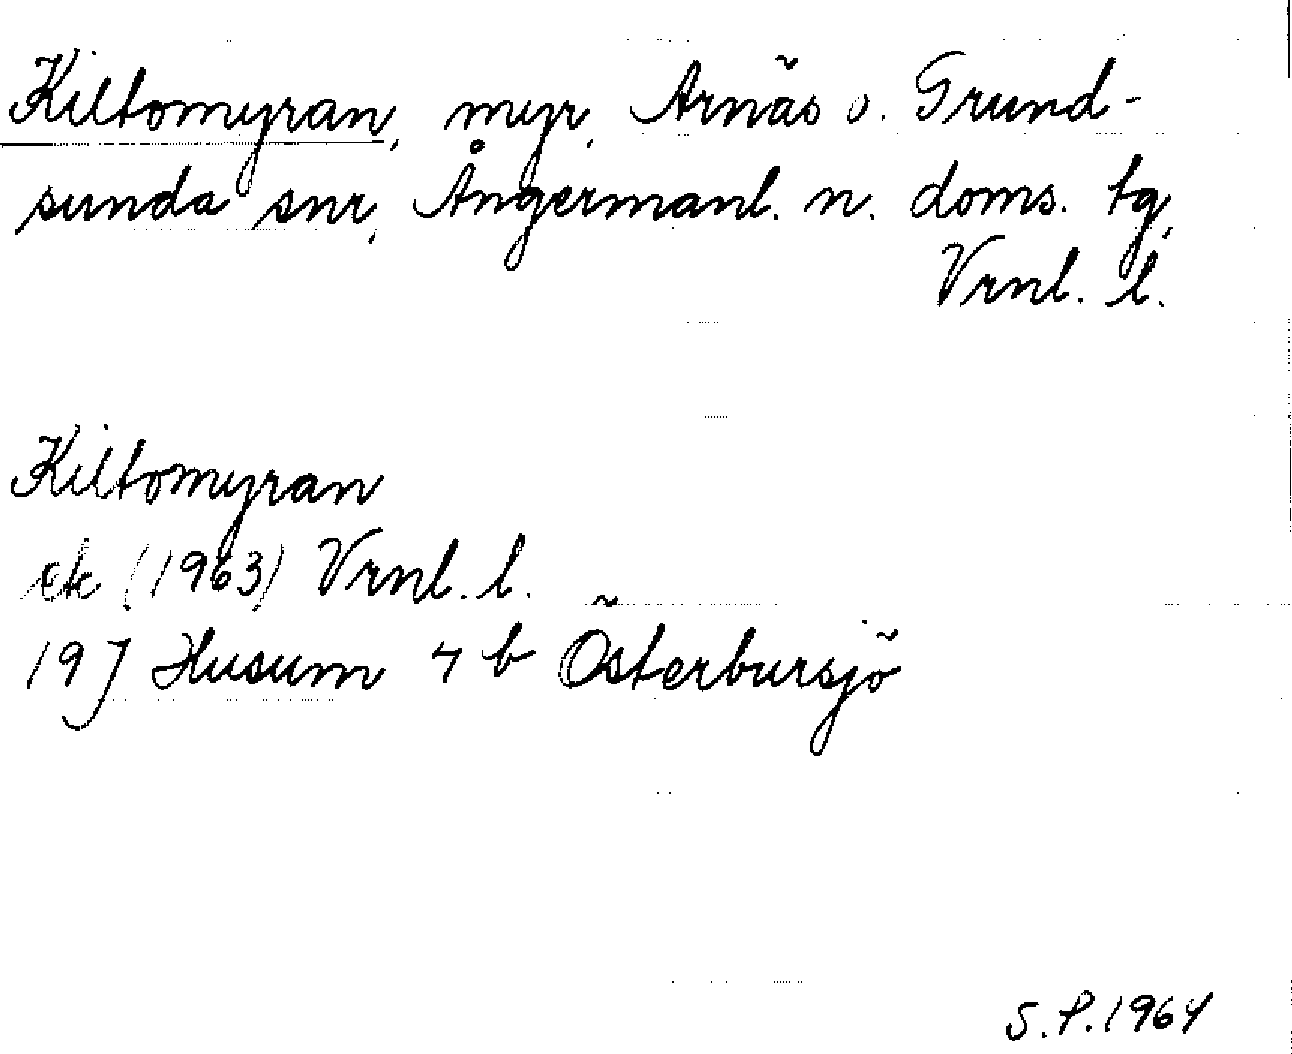 Kiltomyran, myr, Arnäs o. Grund-
sunda snr, Ångermanl. n. doms. tg,
Vrnl. l.
Kiltomyran
ek (1963) Vrnl. l.
19J Husum 4 b Österbursjö
S.P.1964